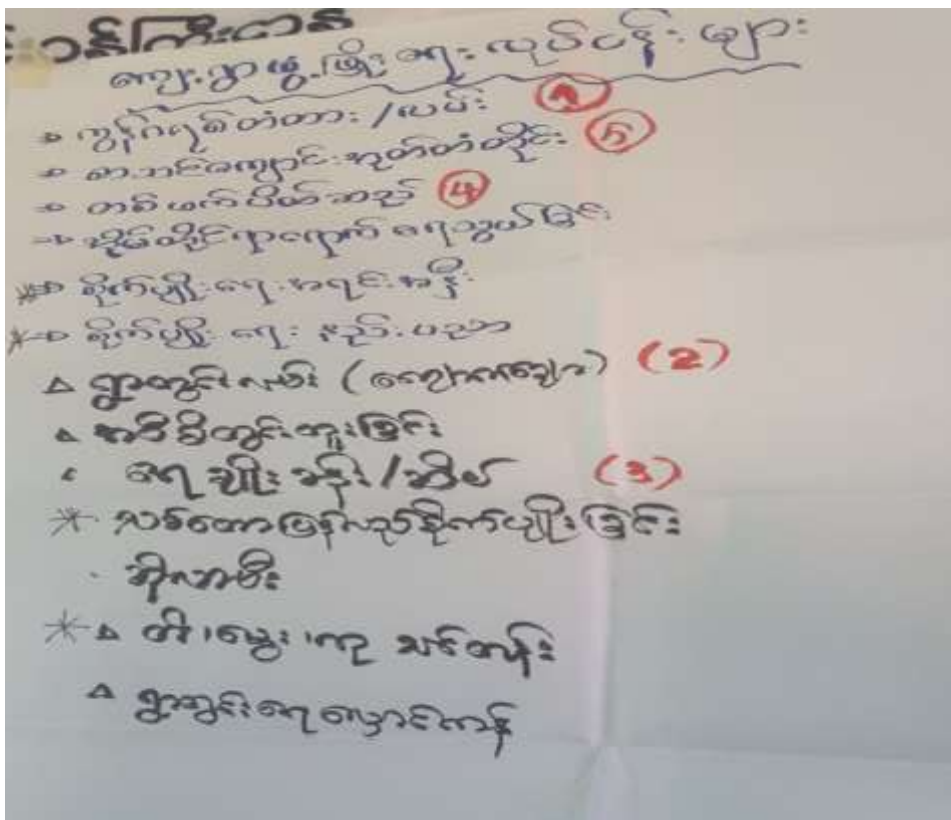 ဝန်ကြီးကန်
ကျေးရွာဖွံ့ဖြိုးရေးလုပ်ငန်းများ
→ ကွန်ကရစ်တံတား / လမ်း ①
→ စာသင်ကျောင်းအုတ်တံတိုင်း ⑤
→ တစ်ဖက်ပိတ်ဆည် ④
→ အိမ်တိုင်ရာရောက် ရေသွယ်ခြင်း
* → စိုက်ပျိုးရေးအရင်းအနှီး
* → စိုက်ပျိုးရေး နည်းပညာ
△ ရွာတွင်းလမ်း (ကျောက်ချော) (2)
△ အဝီစိတွင်းတူးခြင်း
ရေချိုးခန်း / အိမ် (3)
* သစ်တောပြန်လည်စိုက်ပျိုးခြင်း
ဆိုလာမီး
* △ တိ ၊ မွေး ၊ ကု သင်တန်း
△ ရွာတွင်းရေလှောင်ကန်